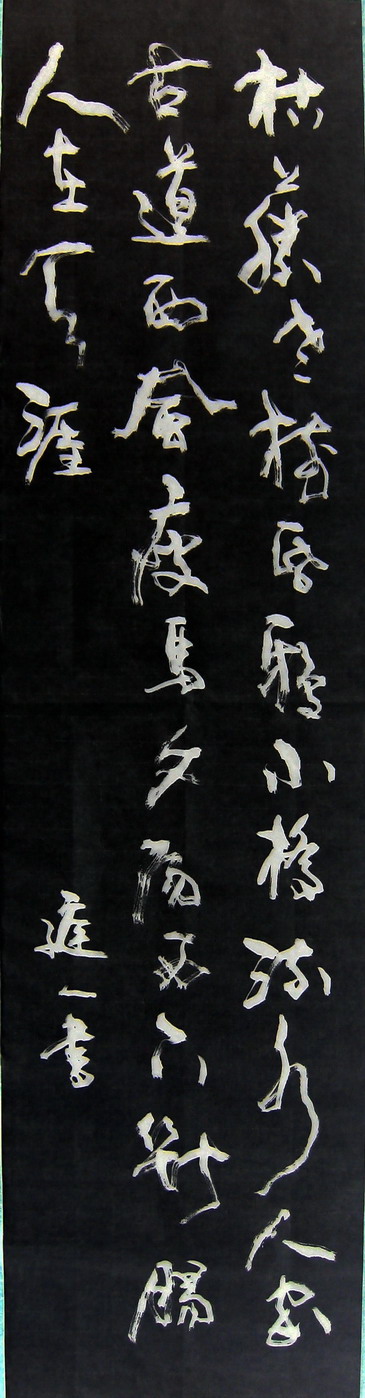 枯藤老樹昏鴉小橋流水人家
古道西風瘦馬夕陽西下斷腸
人在天涯
一書